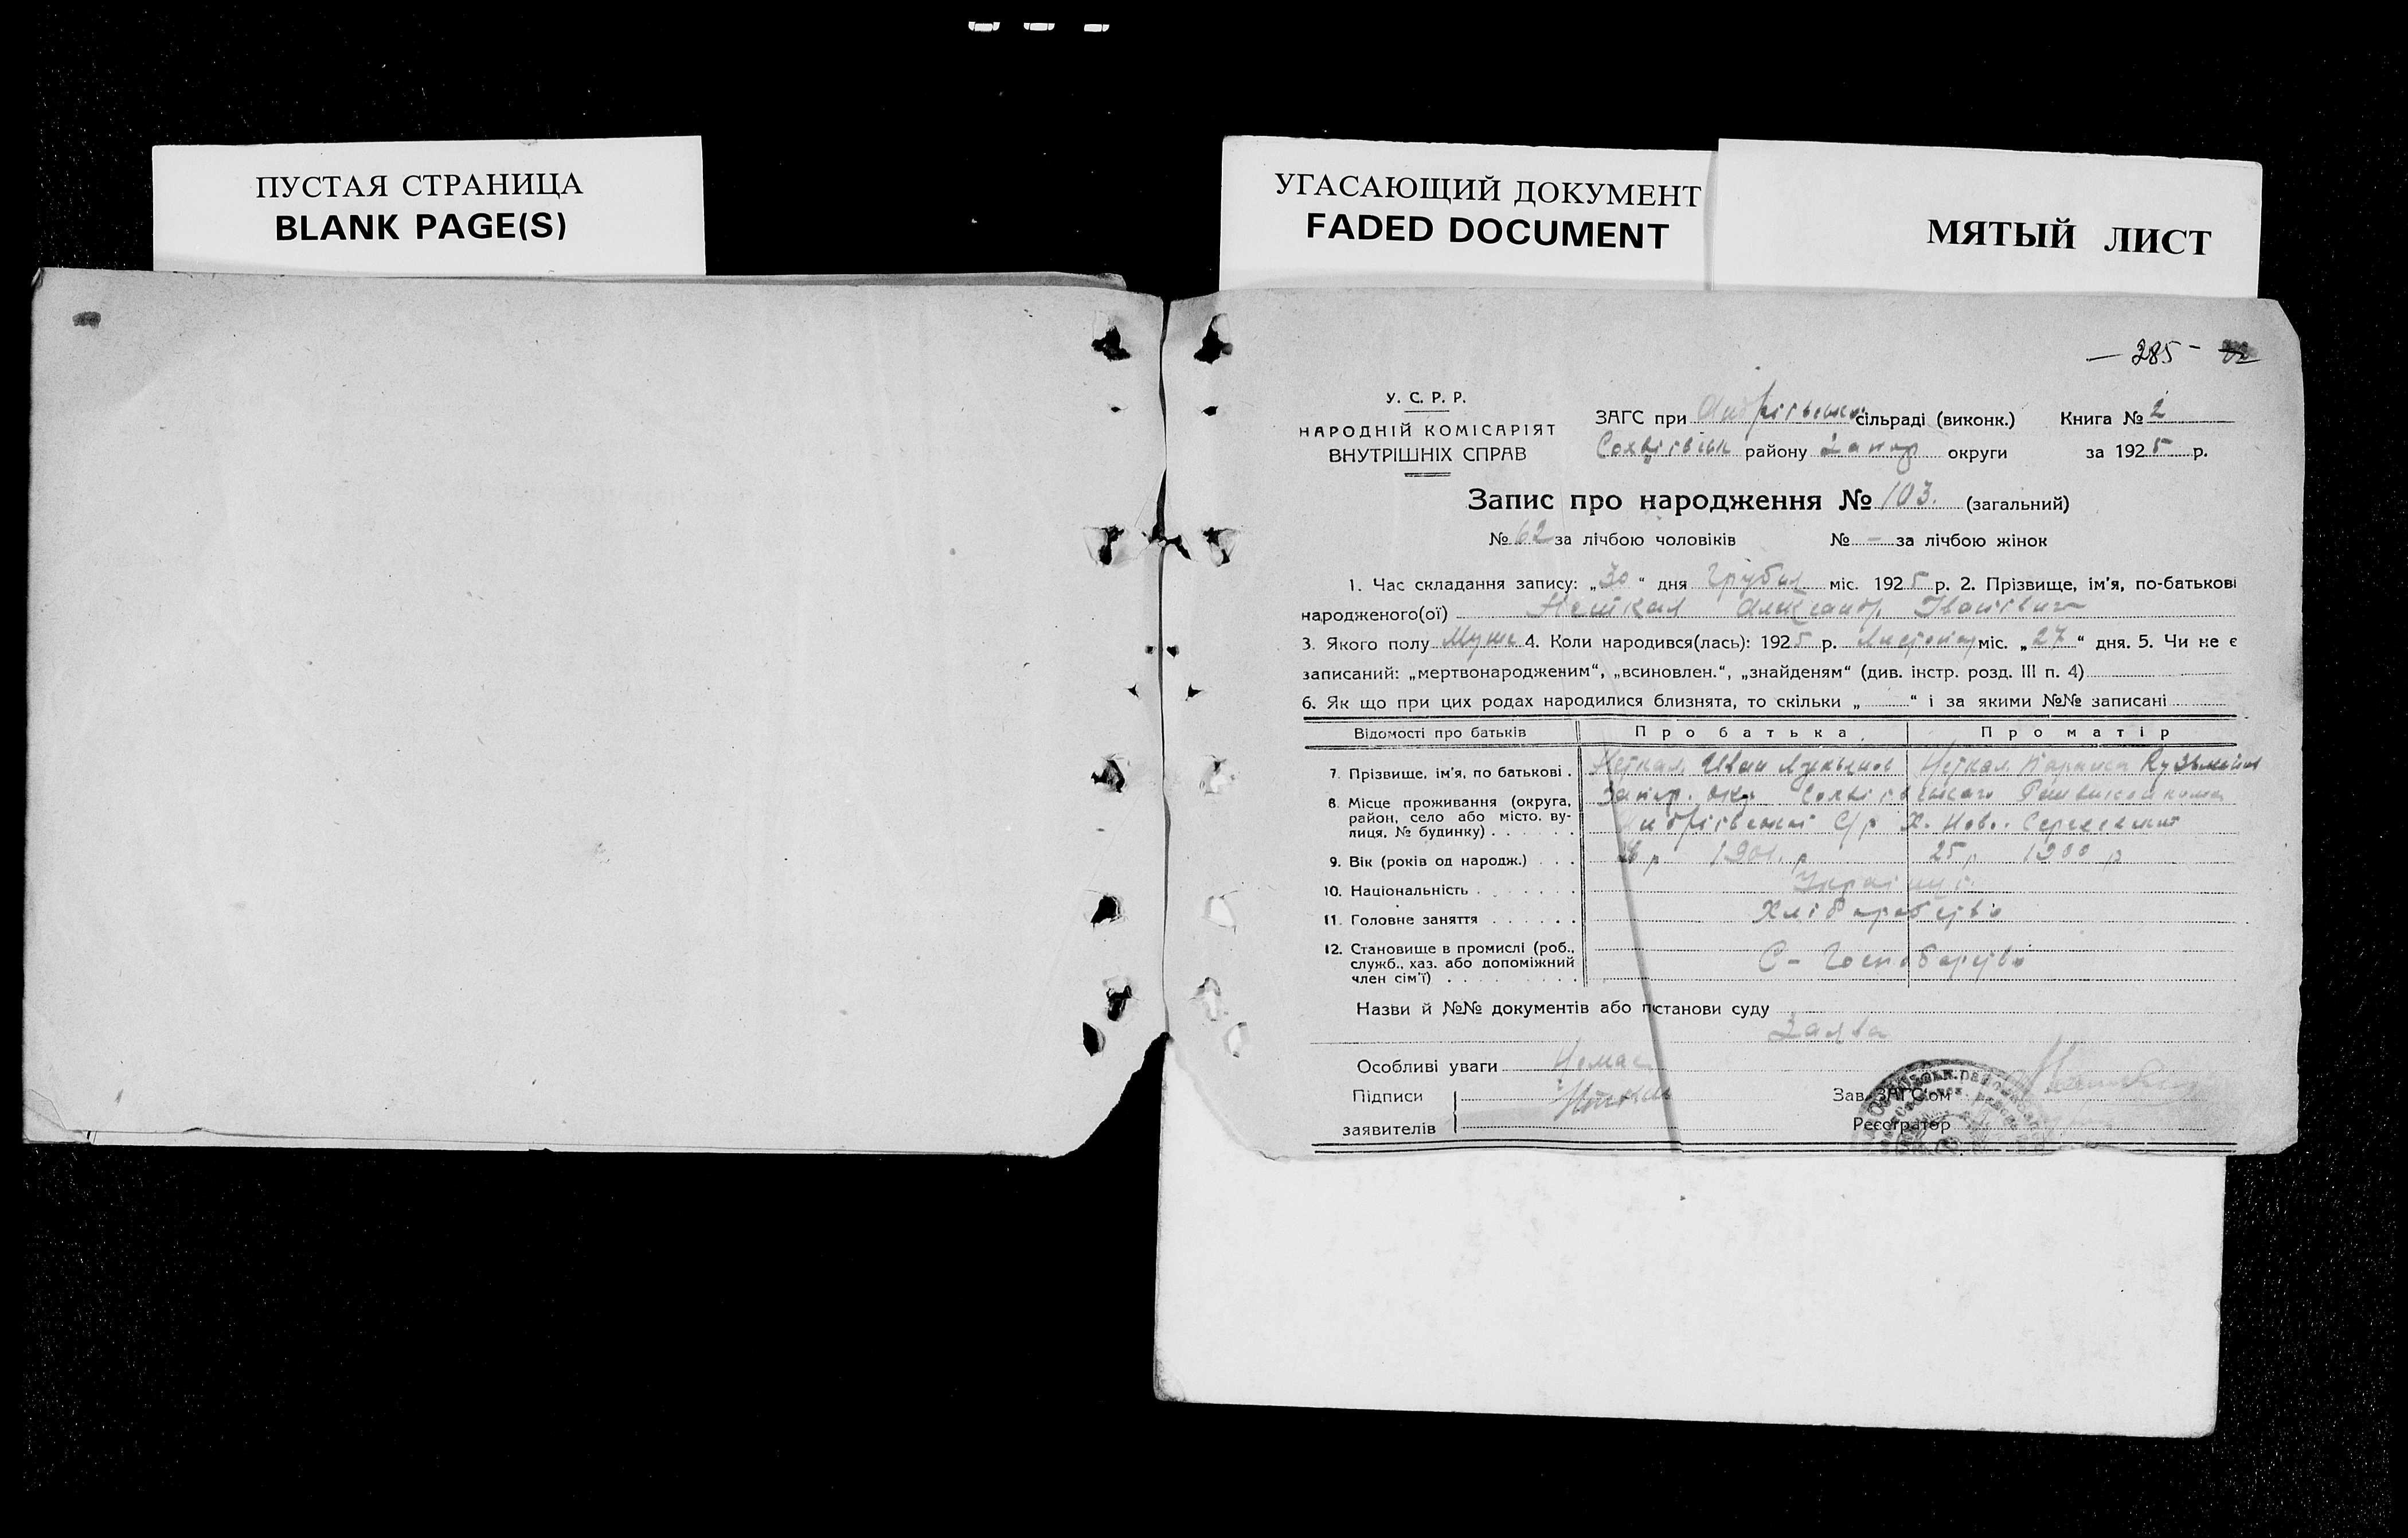 ПУСТАЯ СТРАНИЦА
BLANK PAGE(S)
УГАСАЮЩИЙ ДОКУМЕНТ
FADED DOCUMENT
МЯТЫЙ ЛИСТ
— 285 —
У. С. Р. Р.
НАРОДНІЙ КОМІСАРІЯТ
ВНУТРІШНІХ СПРАВ
ЗАГС при сільраді (виконк.) Книга № 2
району Запор округи за 1925 р.
Запис про народження № 103. (загальний)
№ 62 за лічбою чоловіків № - за лічбою жінок
1. Час складання запису: „30“ дня Грудня міс. 1925 р. 2. Прізвище, ім'я, по-батькові
народженого(ої) Александр Іванович
3. Якого полу Муж 4. Коли народився(лась): 1925 р. Листопад міс. „27“ дня. 5. Чи не є
записаний: „мертвонародженим“, „всиновлен.“, „знайденям“ (див. інстр. розд. III п. 4)
6. Як що при цих родах народилися близнята, то скільки „ “ і за якими №№ записані
Відомості про батьків Про батька Про матір
7. Прізвище, ім'я, по батькові . Иван Кузьмин
8. Місце проживання (округа, Запор. окр.
район, село або місто, ву-
лиця, № будинку) . . . . . . С/р Х. Ново-
9. Вік (років од народж.) . . . 1901. р 25 р 1900 р
10. Національність . . . . . . .
11. Головне заняття . . . . . . Хліборобство
12. Становище в промислі (роб.,
служб., хаз. або допоміжний С-Господарство
член сім'ї) . . . . . . . . .
Назви й №№ документів або постанови суду
Заява
Особливі уваги Немає
Підписи Зав. ЗАГС'ом
заявителів Реєстратор